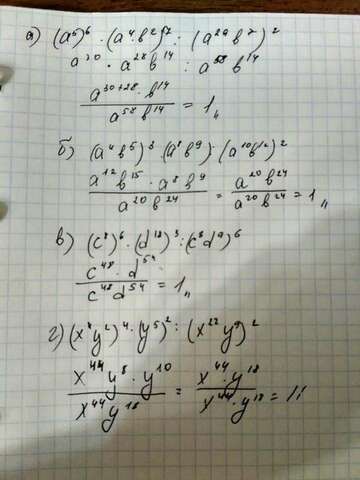 а) (a⁵)⁶ · (a⁴b²)⁷ : (a²⁹b⁷)²
a³⁰ · a²⁸b¹⁴ : a⁵⁸b¹⁴
a³⁰⁺²⁸ · b¹⁴ / a⁵⁸b¹⁴ = 1,,
б) (a⁴b⁵)³ (a⁸b⁹) : (a¹⁰b¹²)²
a¹²b¹⁵ · a⁸b⁹ / a²⁰b²⁴ = a²⁰b²⁴ / a²⁰b²⁴ = 1,,
в) (c⁸)⁶ · (d¹⁸)³ : (c⁸d⁹)⁶
c⁴⁸ · d⁵⁴ / c⁴⁸d⁵⁴ = 1,,
г) (x¹¹y²)⁴ · (y⁵)² : (x²²y⁹)²
x⁴⁴y⁸ · y¹⁰ / x⁴⁴y¹⁸ = x⁴⁴ · y¹⁸ / x⁴⁴ · y¹⁸ = 1,,